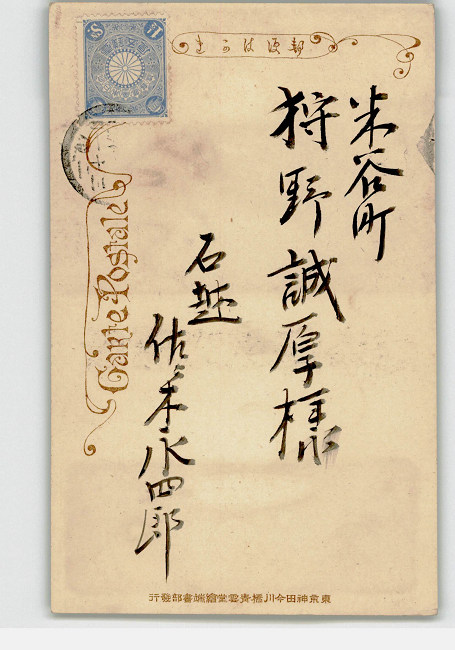 郵便はかき
米谷町
狩野誠厚様
石越
佐々木永四郎
Carte Postale
東京神田今川橋青雲堂繪端書部發行